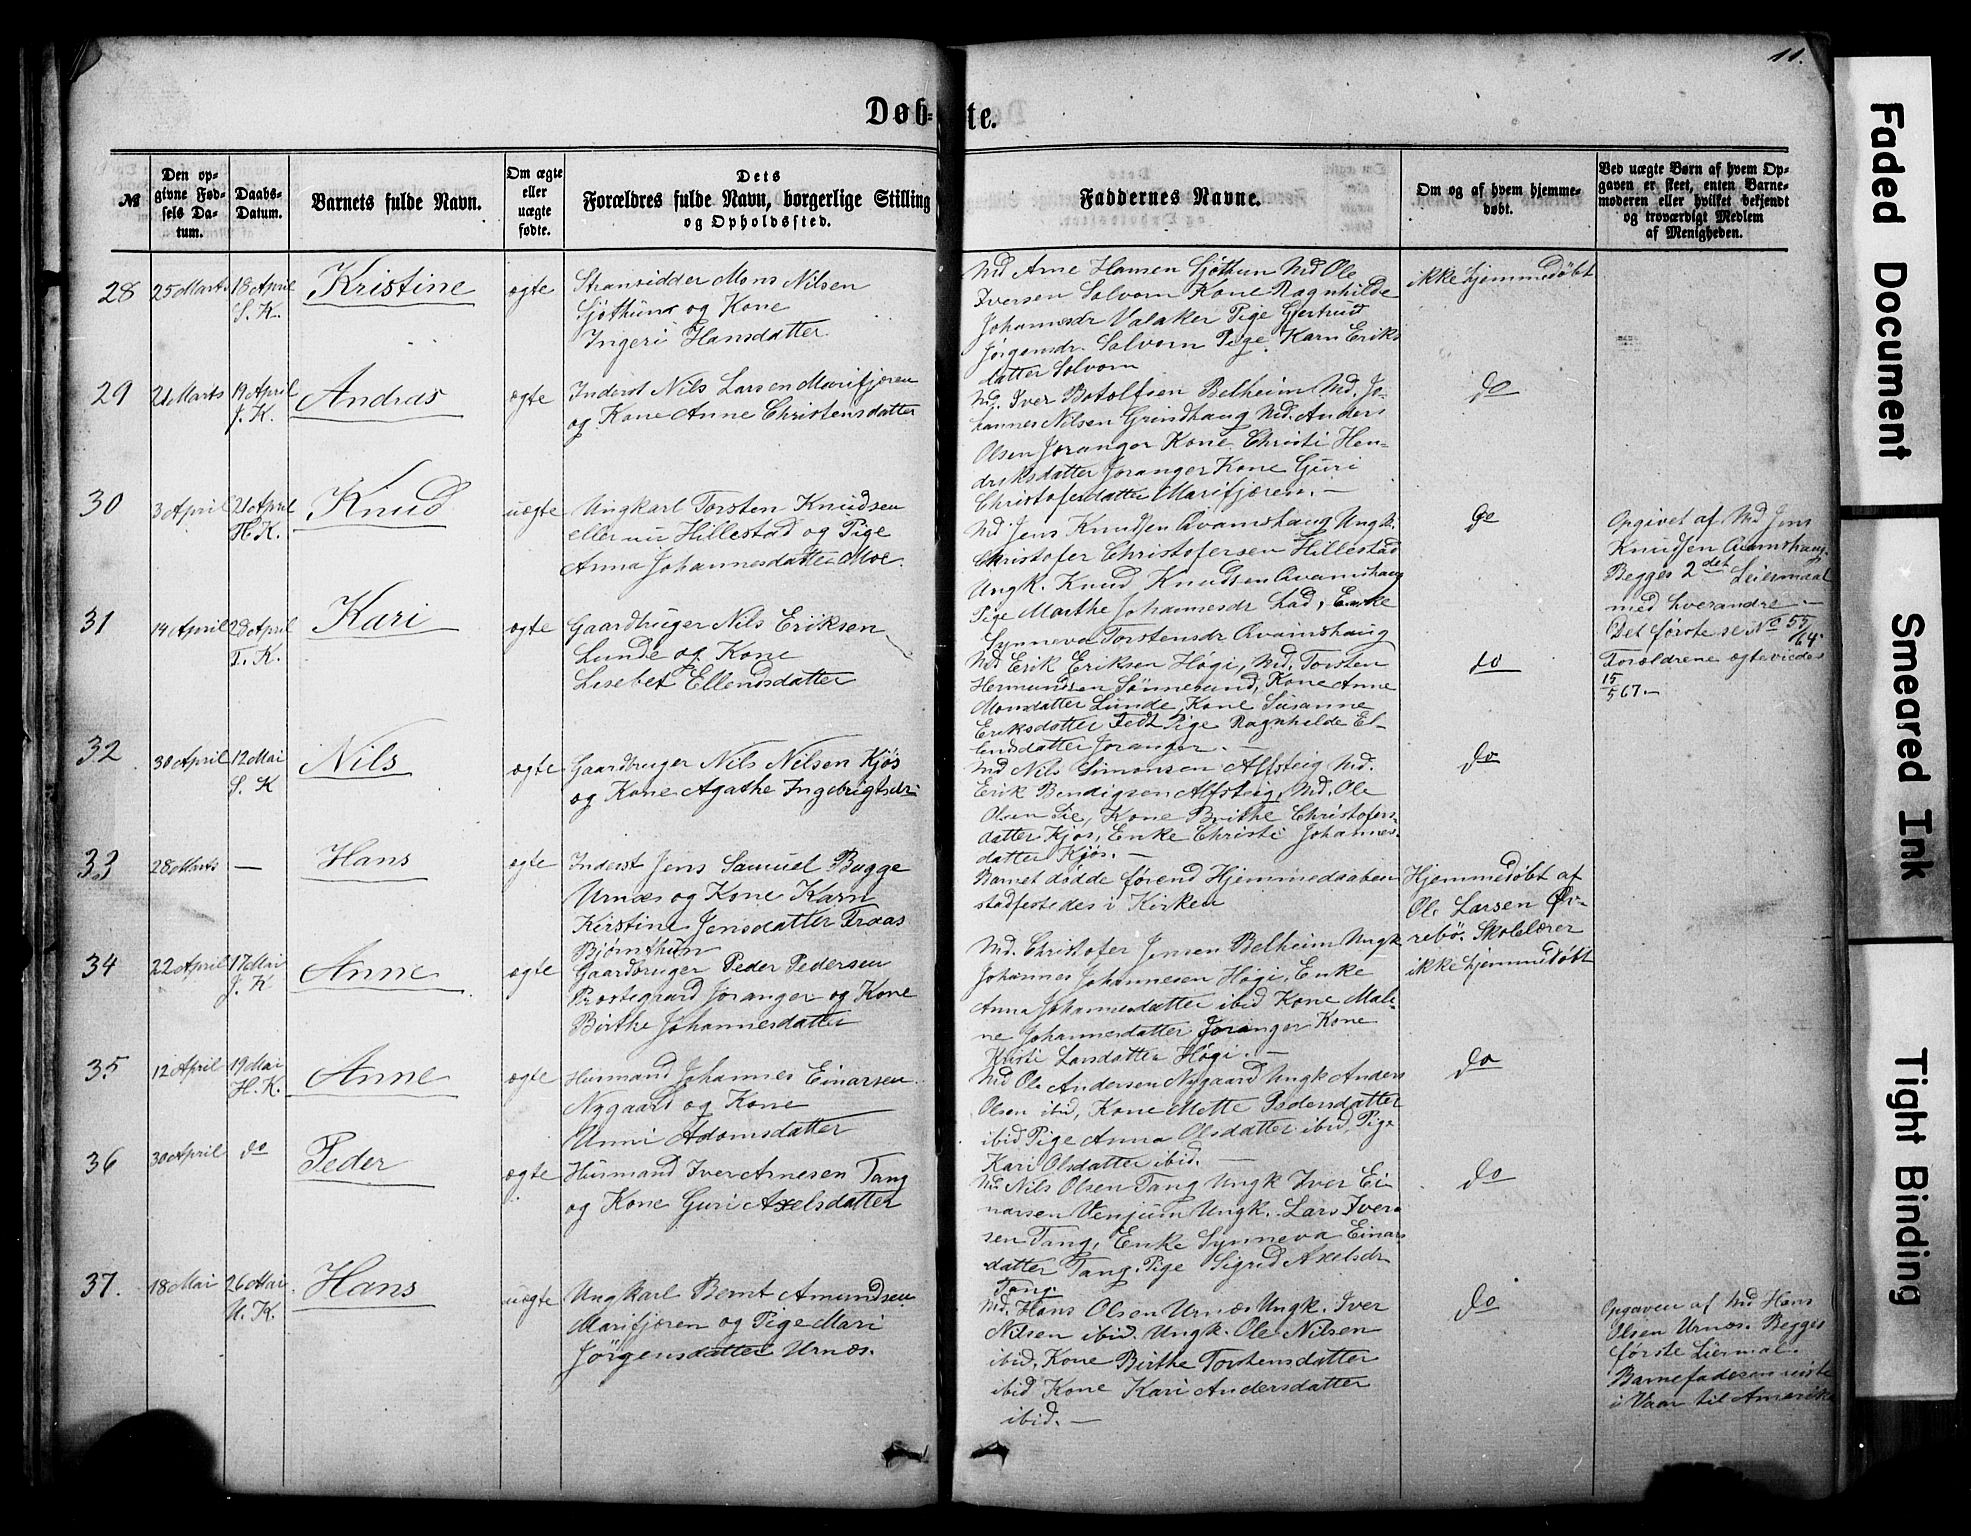 11.
Døb-te.
№
Den op-
givne Fød-
sels Da-
tum.
Daabs-
Datum.
Barnets fulde Navn.
Om ægte
eller
uægte
fødte.
Dets
Forældres fulde Navn, borgerlige Stilling
og Opholdssted.
Faddernes Navne.
Om og af hvem hjemme-
døbt.
Ved uægte Børn af hvem Op-
gaven er skeet, enten Barne-
moderen eller hvilket bekjendt
og troværdigt Medlem
af Menigheden.
28
25 Marts
18 April
S. K.
Kristine
ægte
Strandsidder Mons Nilsen
Sjøthun og Kone
Ingeri Hansdatter
Md Arne Hansen Sjøthun Md Ole
Iversen Solvorn Kone Ragnhilde
Johannesdr Valaker Pige Gjertrud
Jørgensdr. Solvorn Pige Karn Eriks
datter Solvorn
ikke hjemmedøbt
29
21 Marts
19 April
J. K.
Andras
ægte
Inderst Nils Larsen Marifjæren
og Kone Anne Christensdatter
Md. Iver Botolfsen Belheim Md. Jo-
hannes Nilsen Grindhaug Md. Anders
Olsen Joranger Kone Christi Hen-
driksdatter Joranger Kone Guri
Christofersdatter Marifjæren. —
do
30
3 April
21 April
H. K.
Knud
uægte
Ungkarl Torsten Knudsen
eller nu Hillestad og Pige
Anna Johannesdatter Moe.
Md Jens Knudsen Qvamshaug Ungk.
Christofer Christofersen Hillestad
Ungk. Knud Knudsen Qvamshaug
Pige Marthe Johannesdr Lad, Enke
Synneva Torstensdr Qvamshaug
do
Opgivet af Md Jens
Knudsen Qvamshaug.
Begges 2det Leiermaal
med hverandre —
Det første se No 55/64.
Forældrene ægtevieds
15/5 67. —
31
14 April
28 April
J. K.
Kari
ægte
Gaardbruger Nils Eriksen
Lunde og Kone
Lisebet Ellendsdatter
Md Erik Eriksen Høgi, Md. Torsten
Hermundsen Sønnesund, Kone Anne
Monsdatter Lunde, Kone Susanne
Eriksdatter Fedt Pige Ragnhilde El-
lendsdatter Joranger. —
do
32
30 April
12 Mai
S. K
Nils
ægte
Gaardbruger Nils Nilsen Kjøs
og Kone Agathe Ingebrigtsdr
Md Nils Simonsen Alfsteig Md.
Erik Bendigsen Alfsteig, Md. Ole
Olsen Lie, Kone Brithe Christofers-
datter Kjøs, Enke Christi Johannes-
datter Kjøs. —
do
33
28 Marts
—
Hans
ægte
Inderst Jens Samuel Bugge
Urnæs og Kone Karn
Kirstine Jensdatter Traas
Bjørnthun
Barnet dødde førend Hjemmedaaben
stadfestedes i Kirken
Hjemmedøbt af
Ole Larsen Øv-
rebø. Skolelærer
34
22 April
17 Mai
J. K
Anne
ægte
Gaardbruger Peder Pedersen
Prestegaard Joranger og Kone
Birthe Johannesdatter
Md. Christofer Jensen Belheim Ungk
Johannes Johannesen Høgi, Enke
Anna Johannesdatter ibid Kone Mali-
ne Johannesdatter Joranger Kone
Kristi Larsdatter Høgi. —
ikke hjemmedøbt
35
12 April
19 Mai
H. K.
Anne
ægte
Husmand Johannes Einarsen
Nygaard og Kone
Unni Adamsdatter
Md Ole Andersen Nygaard Ungk Anders
Olsen ibid, Kone Mette Pedersdatter
ibid Pige Anna Olsdatter ibid, Pige
Kari Olsdatter ibid. —
do
36
30 April
do
Peder
ægte
Husmand Iver Arnesen Tang
og Kone Guri Axelsdatter
Md Nils Olsen Tang Ungk Iver Ei-
narsen Venjum Ungk. Lars Iver-
sen Tang, Enke Synneva Einars
datter Tang. Pige Sigrid Axelsdr
Tang.
do
37.
18 Mai
26 Mai
U. K.
Hans
uægte
Ungkarl Bernt Amundsen
Marifjæren og Pige Mari
Jørgensdatter Urnæs.
Md. Hans Olsen Urnæs Ungk. Iver
Nilsen ibid. Ungk. Ole Nilsen
ibid, Kone Birthe Torstensdatter
ibid Kone Kari Andersdatter
ibid. —
do
Opgaven af Md Hans
Olsen Urnæs. Begges
første Leiermal.
Barnefaderen reiste
i Vaar til Amerika
Faded Document
Smeared Ink
Tight Binding